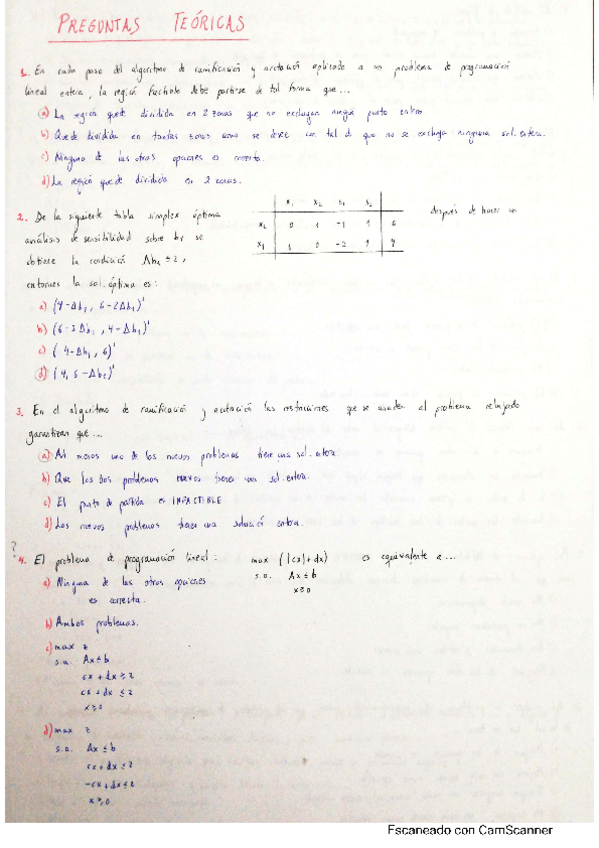 PREGUNTAS TEÓRICAS
1. En cada paso del algoritmo de ramificación y acotación aplicado a un problema de programación
lineal entera, la región factible debe partirse de tal forma que...
a) La región quede dividida en 2 zonas que no excluyan ningún punto entero
b) Quede dividida en tantas zonas como se desee con tal de que no se excluya ninguna sol. entera.
c) Ninguna de las otras opciones es correcta.
d) La región quede dividida en 2 zonas.
2. De la siguiente tabla simplex óptima
x1 x2 s1 s2
x2 0 1 -1 1 6
x1 1 0 -2 1 4
después de hacer un
análisis de sensibilidad sobre b1 se
obtiene la condición Δb1 ≤ 2,
entonces la sol. óptima es:
a) (4-Δb1, 6-2Δb1)'
b) (6-2Δb1, 4-Δb1)'
c) (4-Δb1, 6)'
d) (4, 6-Δb1)'
3. En el algoritmo de ramificación y acotación las restricciones que se añaden al problema relajado
garantizan que...
a) Al menos uno de los nuevos problemas tiene una sol. entera
b) Que los dos problemas nuevos tienen una sol. entera.
c) El punto de partida es INFACTIBLE
d) Los nuevos problemas tienen una solución entera.
?
4. El problema de programación lineal: max (|cx|+dx) es equivalente a...
s.a. Ax≤b
x≥0
a) Ninguna de las otras opciones
es correcta.
b) Ambos problemas.
c) max z
s.a. Ax≤b
cx+dx≥z
cx+dx≤z
x≥0
d) max z
s.a. Ax≤b
cx+dx≤z
-cx+dx≤z
x≥0
Escaneado con CamScanner